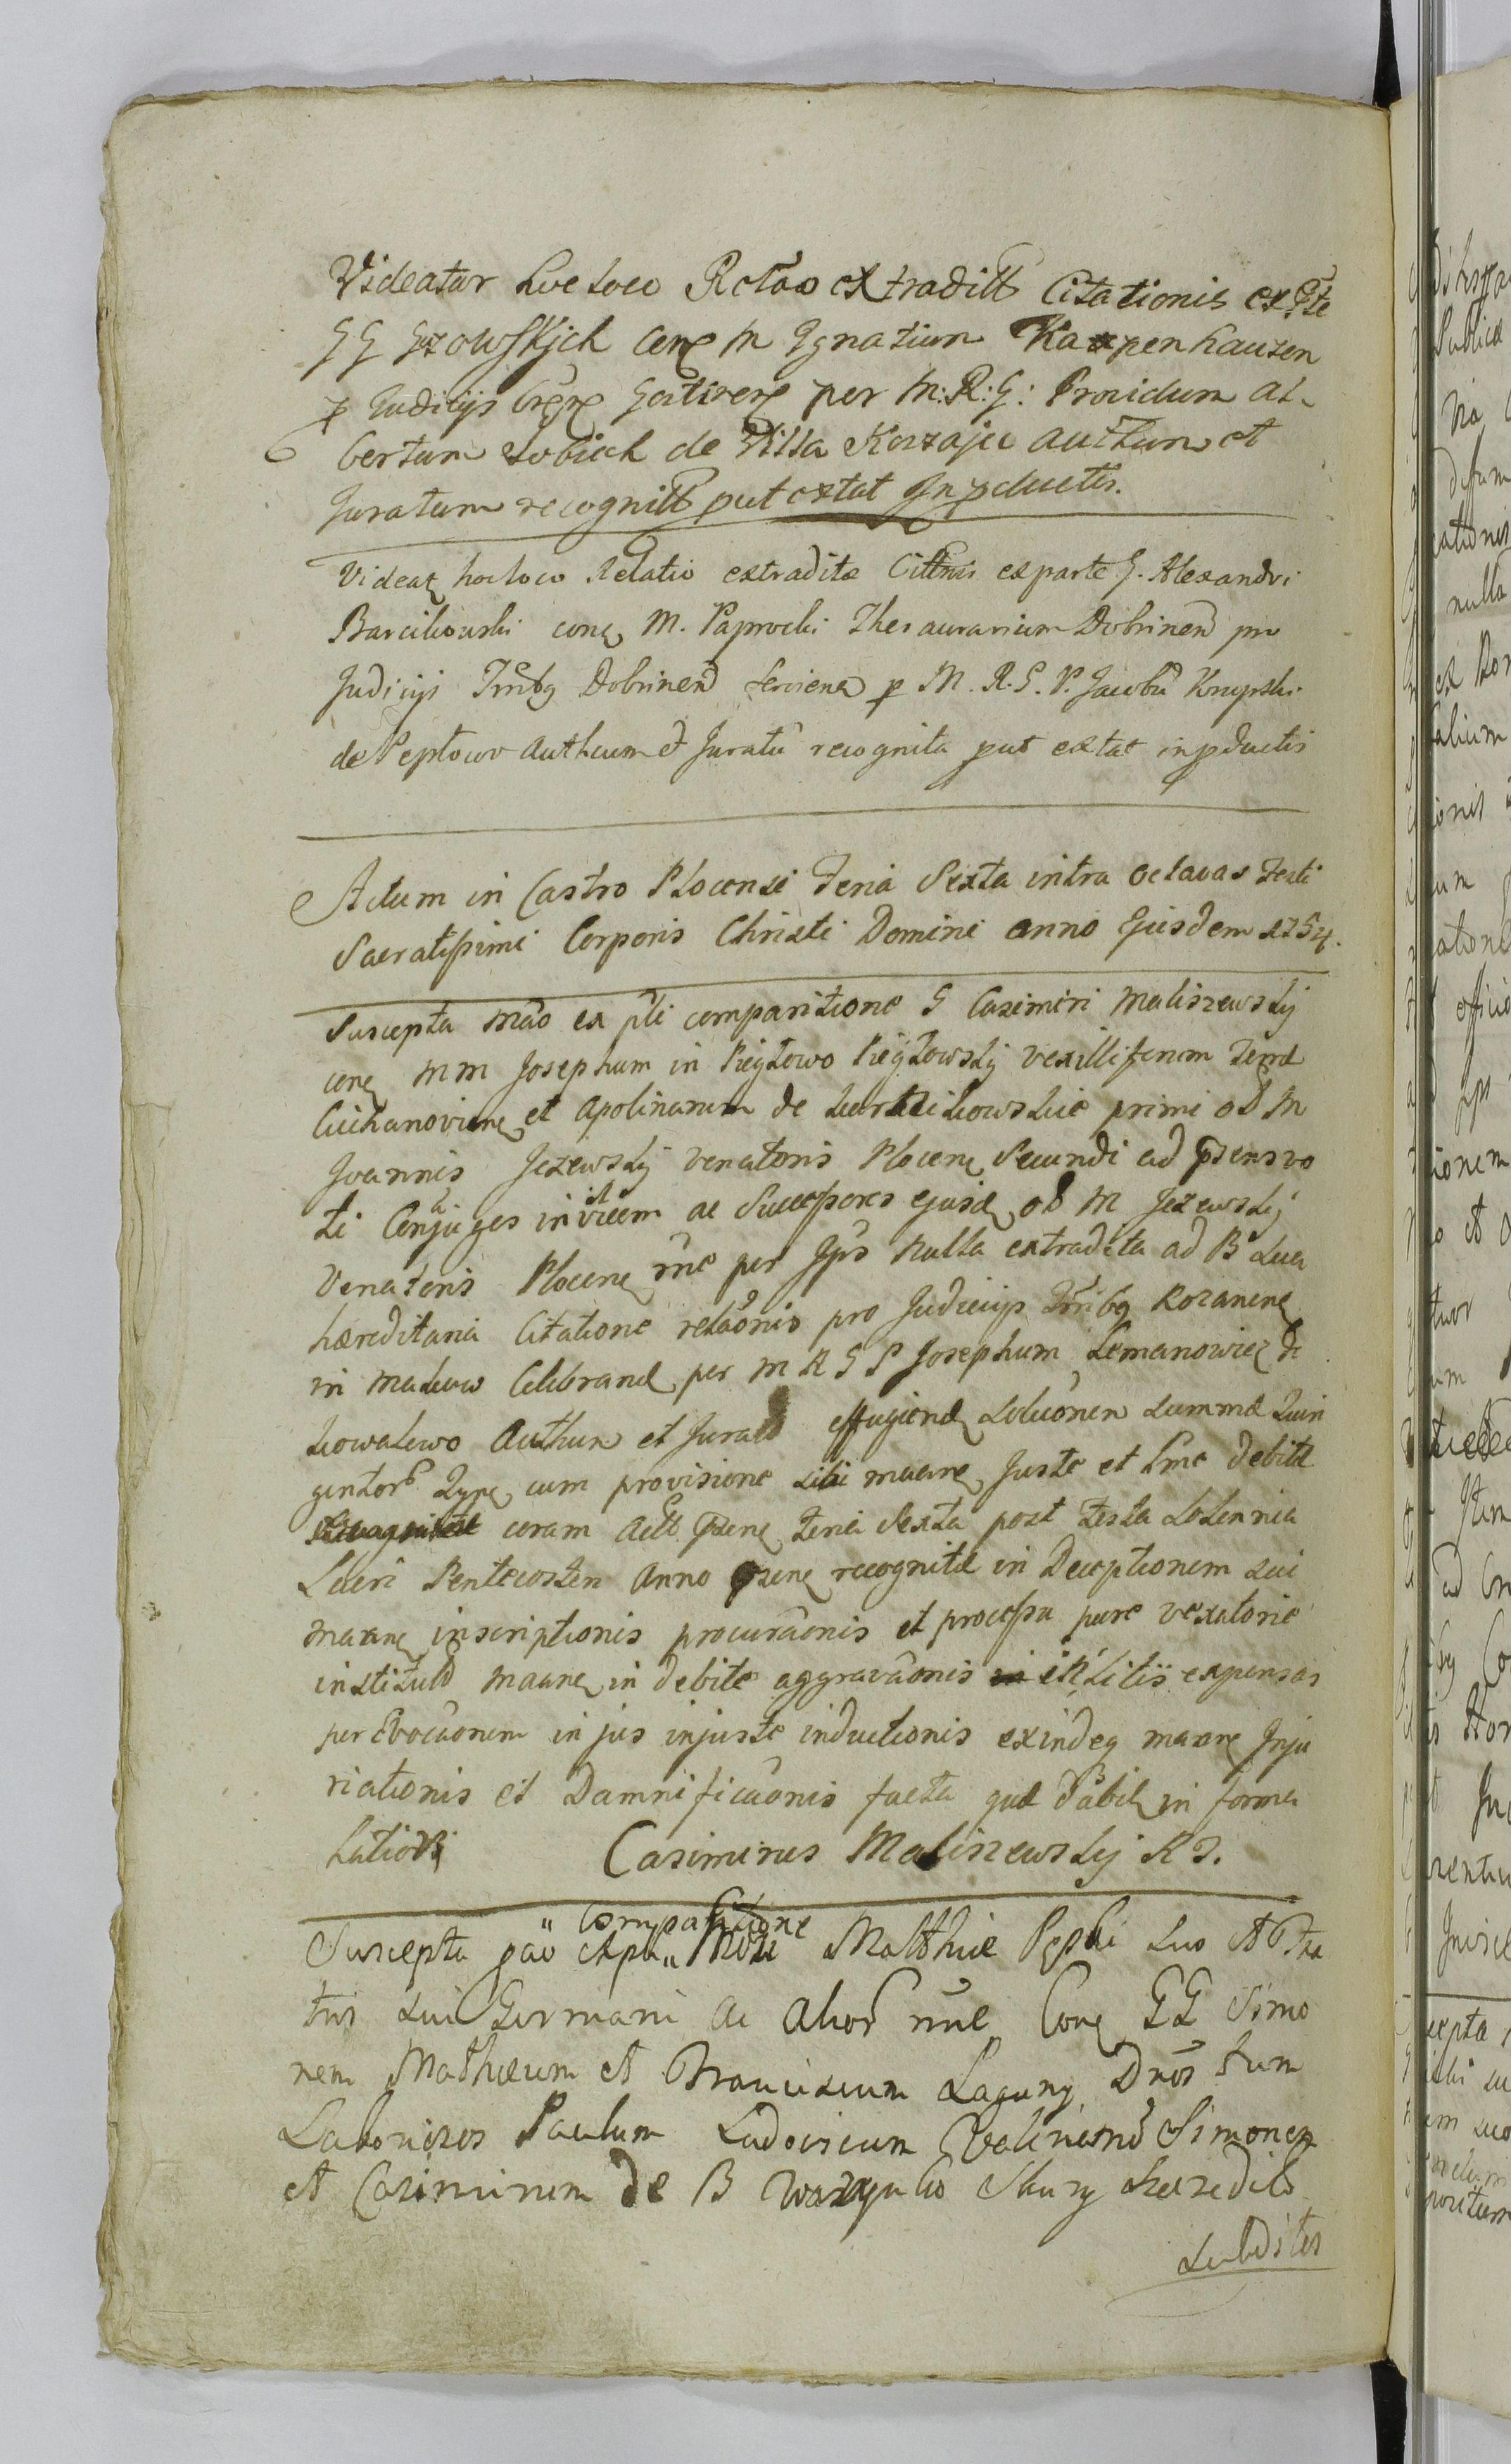 Videatur hoc loco Relão extradittæ Citationis ex Pte
G G Gzowskich conq M Ignatium Kazpenhauzen
p Judicijs Gatrere per M: R: G: Providum Al-
bertum Sobiech de Villa Korzajie Authum et
Juratum recognittæ put extat In pductis.
Videatq hoc loco Relatio extraditæ Cittnis ex parte G. Alexandri
Barcikowski conq M. Paprocki Thesaurarium Dobrinen pro
Judicijs Trrbq Dobrinen serviend p M. R. G. P. Jacobu Krupski
de Peplowo Authum et Juratu recognita put extat in pductis
Actum in Castro Plocensi Feria Sexta intra Octavas Festi
Sacratissimi Corporis Christi Domini anno Ejusdem 1754.
Suscepta mão ex pti comparitione G Casimiri Maliszewskij
conq M M Josephum in Kijtowo vexilliferum Terræ
Ciechanoviens et Apolinarem de primi ol M
Joannis Jezewskij Venatoris Plocenq Secundi ad psens vo
ti Conjuges invicem ac Successores ejusdq ol M Jezewskij
Venatoris Plocenq rñe per Jps nulla extradita ad B Luca
hæreditaria Citatione relaonis pro Judicijs Trribq Rozanenq
in Makow Celebrand per M R G P Josephum Lemanowicz de
Kowalewo Authum et Jurato effugiendq Solucionem Summæ Quin
gentor Zypnq cum provisione sibi maare Juste et Lme debitæ
coram Actt psenq feria Sexta post Festa Solennia
Sacri Pentecosten Anno psenq recognitæ in Deceptionem sui
maanq inscriptionis procuraonis et processu pure vexatorie
instituto maanq in debite aggravaonis in Litis expensas
per Evocaonem in jus injuste inductionis exindeq maanq Inju
riationis et Damnificaonis facta quæ dabitq in forma
latiori Casimirus Maliszewskij R D.
" Comparitione
Suscepta pao expti " Matthiæ Pepski suo et Fra
tris sui Germani ac alior Conq GG Simo
nem Mathæum et Franciscum Laguny Dños tum
Laboriosos Paulum Ludovicum Simonem
et Casimirum de B Skury Hæredito
Subditos